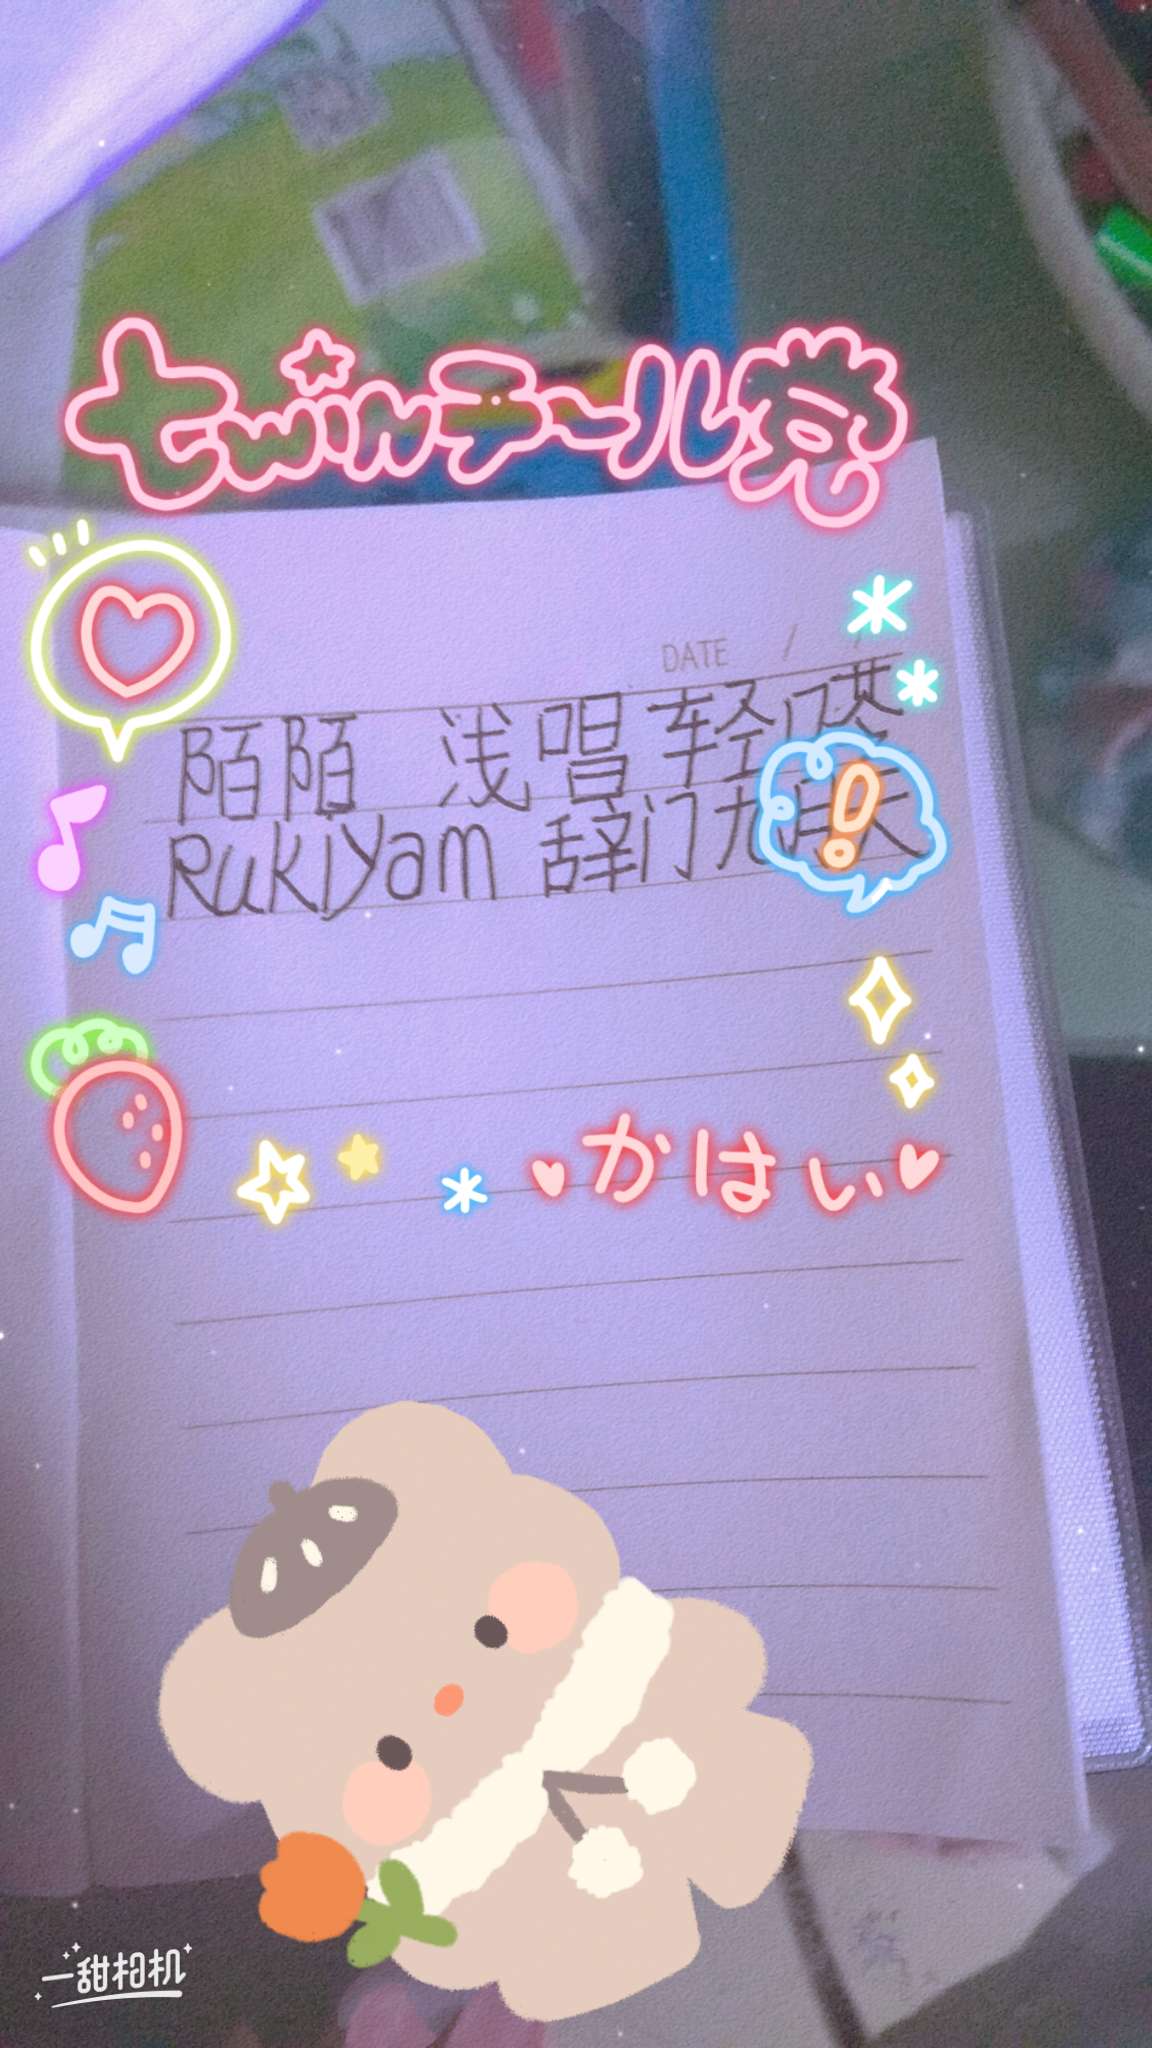 twinテール党
DATE / /
陌陌 浅唱轻
RukiYam 辞门九
かはぃ
一甜相机